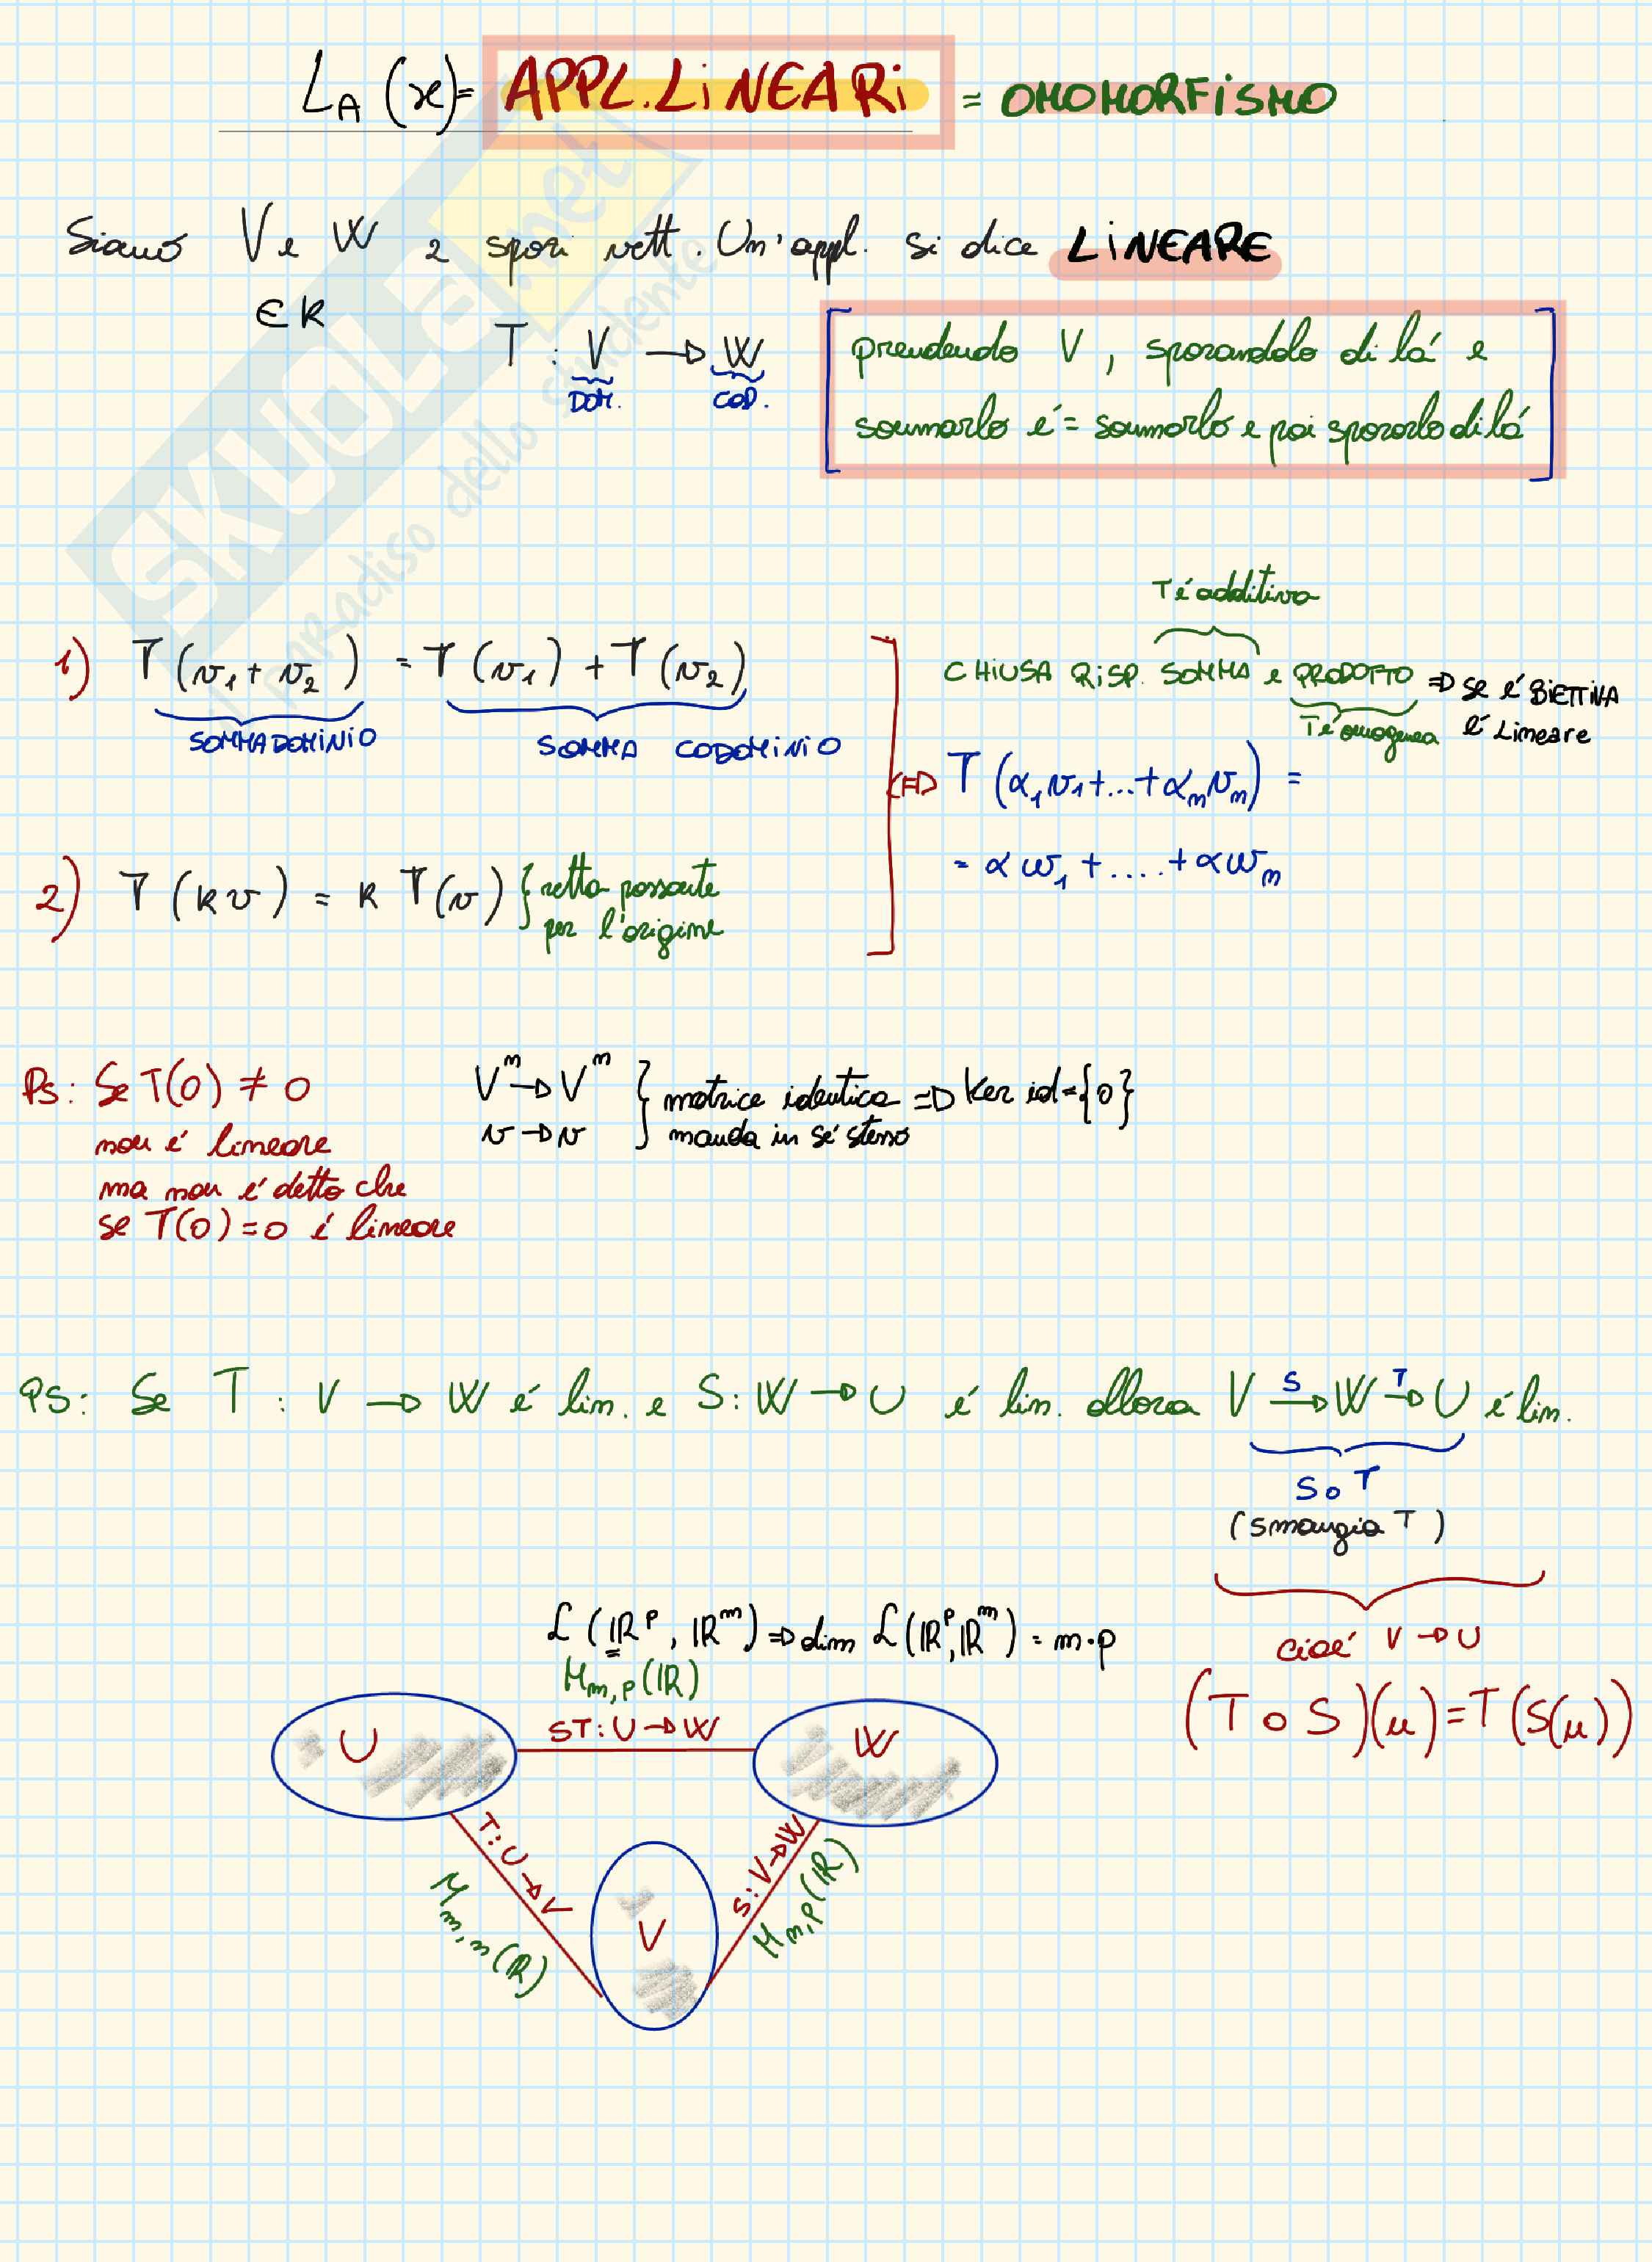 L_A (x) = APPL. LINEARI = OMOMORFISMO
Siano V e W 2 spazi vett. Un'appl. si dice LINEARE
∈ K
T : V → W
DOM. COD.
[prendendo V, spozandolo di lá e
sommarlo é = sommarlo e poi spozarlo di lá]
T é additiva
1) T(v₁ + v₂) = T(v₁) + T(v₂)
SOMMA DOMINIO SOMMA CODOMINIO
CHIUSA RISP. SOMMA e PRODOTTO ⇒ se é BIETTIVA
T é omogenea é Lineare
⇔ T(α₁v₁ + ... + αₘvₘ) =
= αw₁ + .... + αwₘ
2) T(kv) = k T(v) } retta passante
per l'origine
Ps: Se T(0) ≠ 0
non é lineare
ma non é detto che
se T(0) = 0 é lineare
Vᵐ → Vᵐ } matrice identica ⇒ Ker id = {0}
v → v manda in sé stesso
PS: Se T : V → W é lin. e S : W → U é lin. allora V →S W →T U é lin.
S o T
(S mangia T)
cioé V → U
(T o S)(u) = T(S(u))
L(ℝᵖ, ℝᵐ) ⇒ dim L(ℝᵖ, ℝᵐ) = m·p
Mₘ,ₚ(ℝ)
U ST : U → W W
T : U → V
Mₘ,ₙ(ℝ)
S : V → W
Mₙ,ₚ(ℝ)
V
SKUOLA.net
il paradiso dello studente